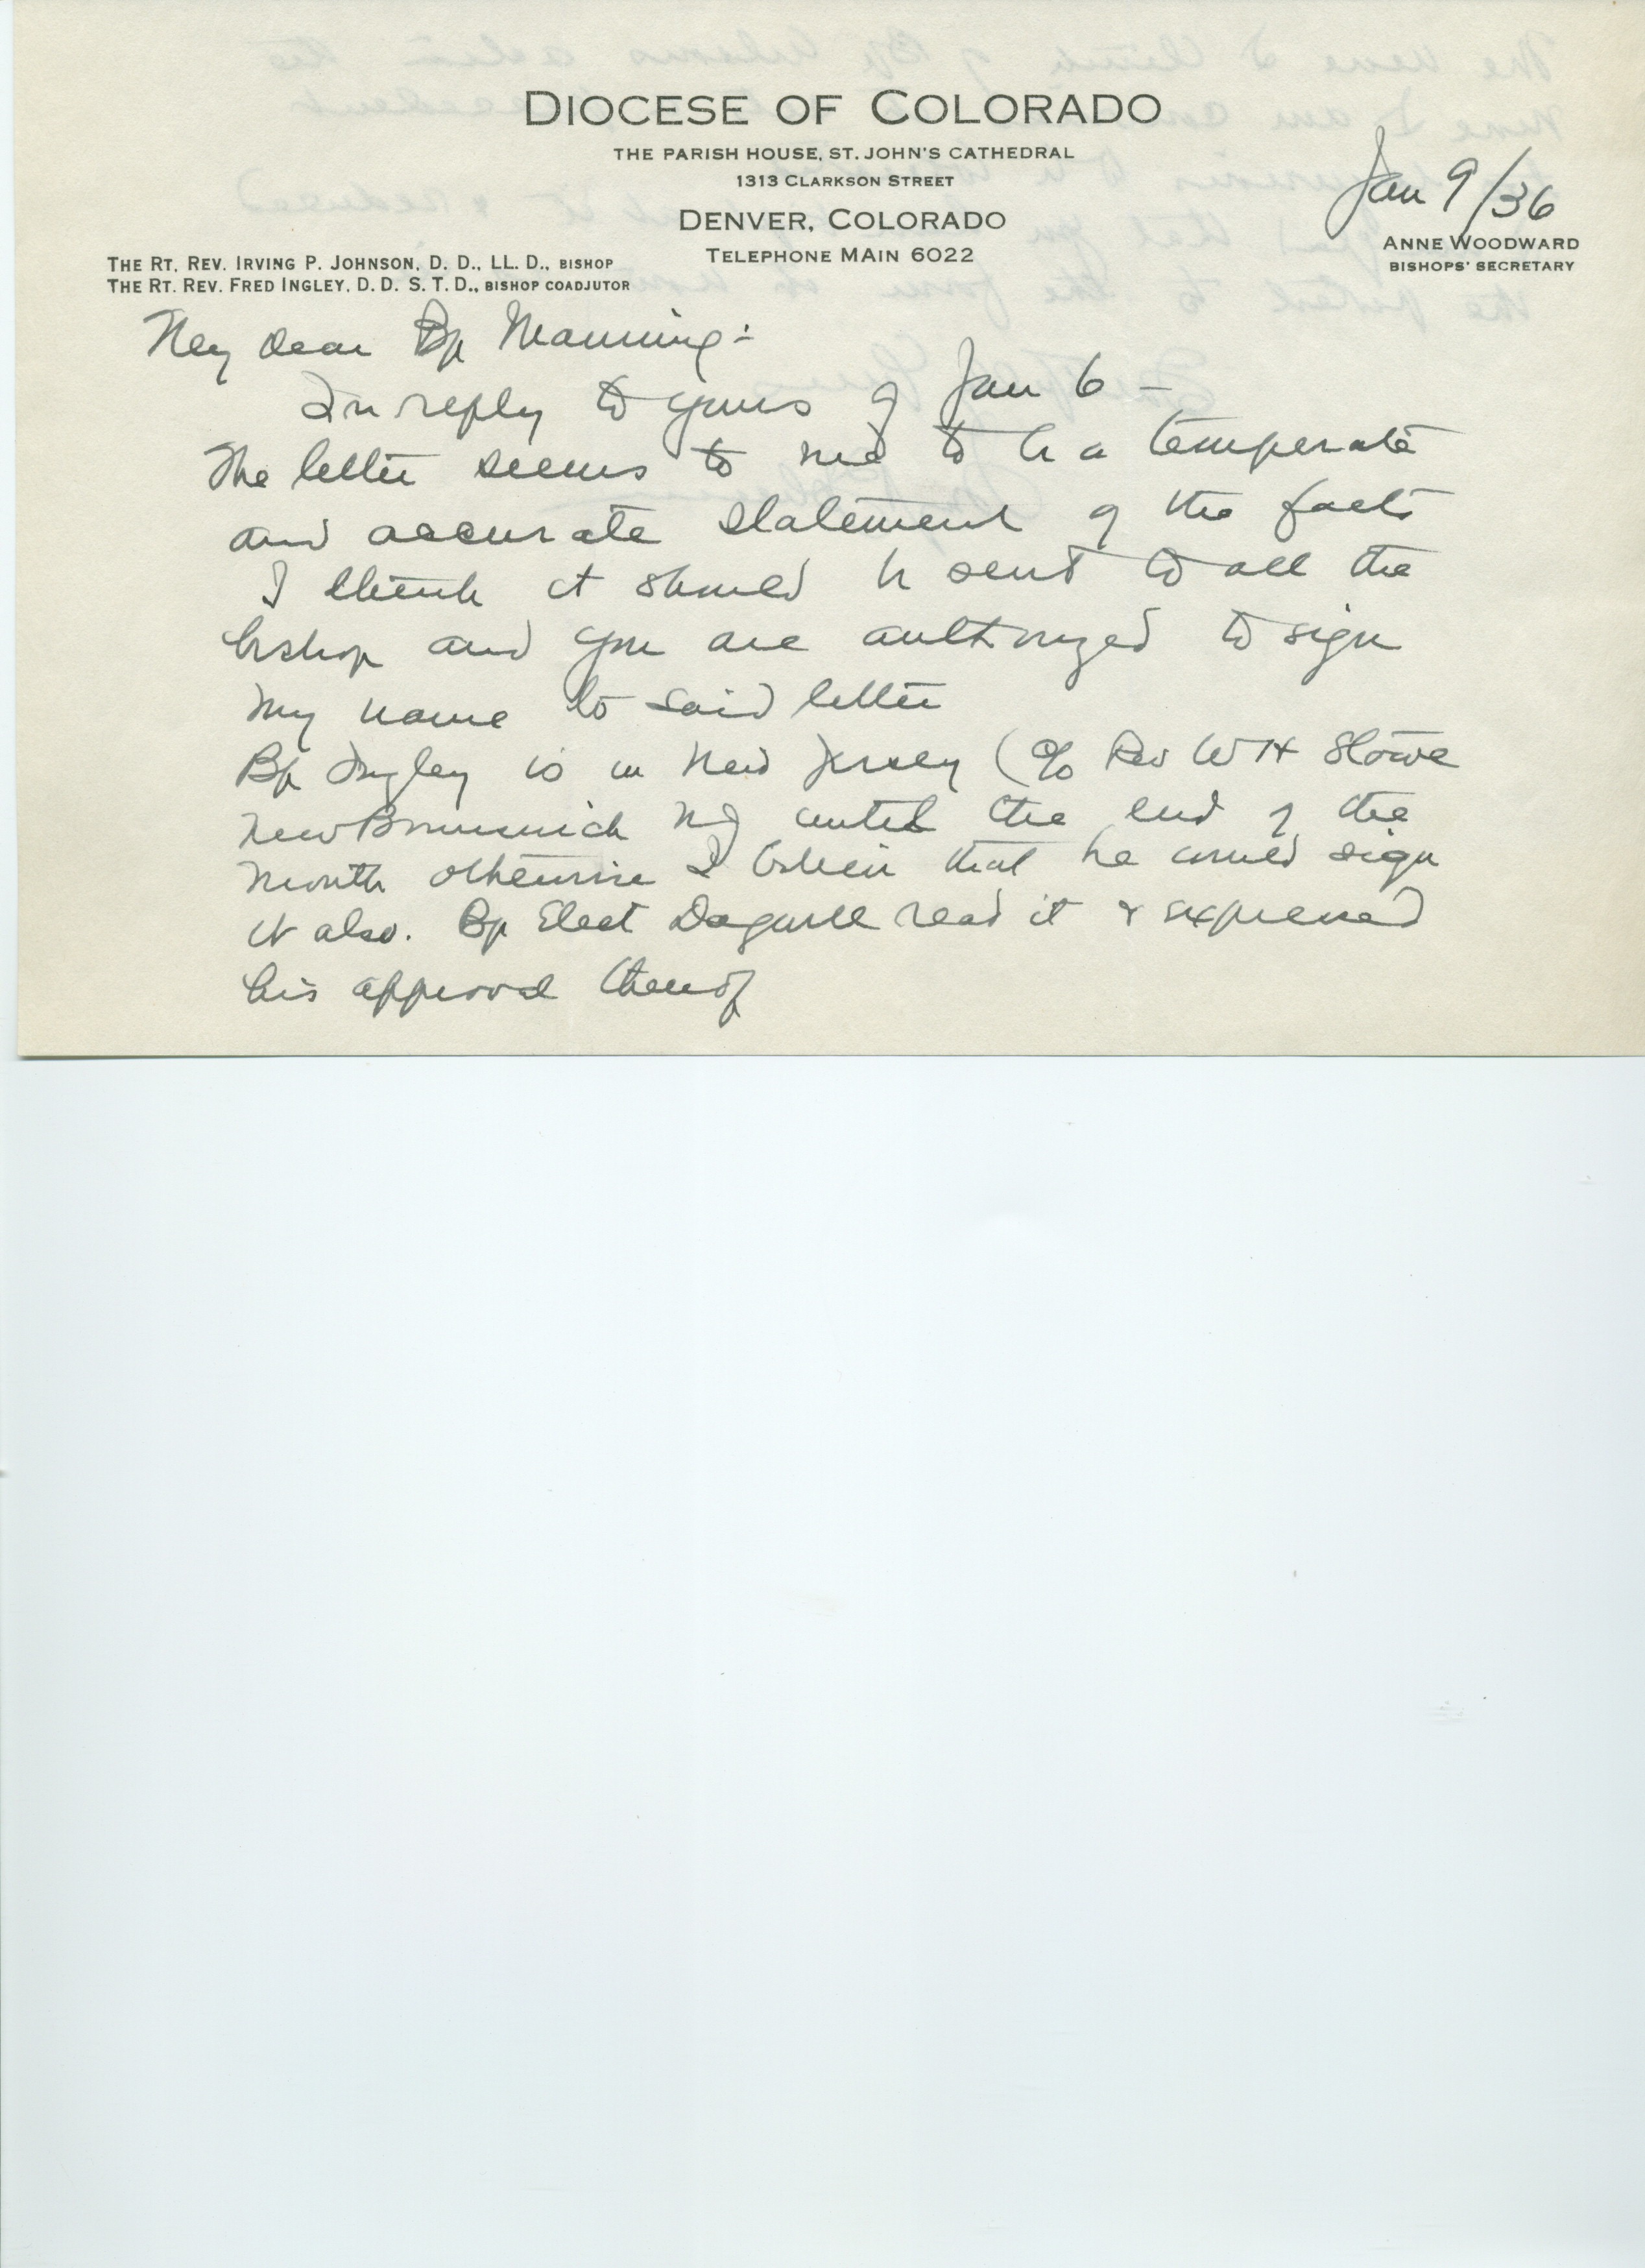 DIOCESE OF COLORADO
THE PARISH HOUSE, ST. JOHN'S CATHEDRAL
1313 CLARKSON STREET
DENVER, COLORADO
TELEPHONE MAIN 6022
Jan 9/36
ANNE WOODWARD
BISHOPS' SECRETARY
THE RT. REV. IRVING P. JOHNSON, D. D., LL. D., BISHOP
THE RT. REV. FRED INGLEY, D. D. S. T. D., BISHOP COADJUTOR
My dear Bp Manning:-
In reply to yours of Jan 6 -
The letter seems to me to be a temperate
and accurate statement of the facts
I think it should be sent to all the
bishop and you are authorized to sign
my name to said letter
Bp Ingley is in New Jersey (c/o Rev W H Stowe
New Brunswick NJ until the end of the
month otherwise I believe that he would sign
it also. Bp Elect Dagwell read it & expressed
his approval thereof